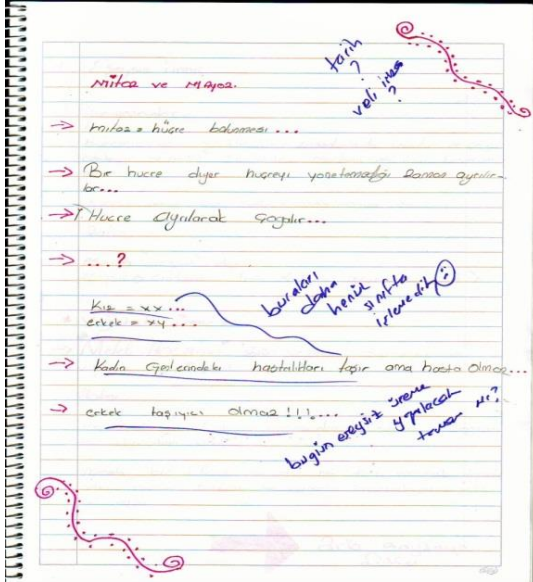 tarih
?
veli imza
?
mitoz ve Mayoz.
→ mitoz = hücre bölünmesi ...
→ Bir hucre diyer huçreyi yönetemediği zaman ayrılır-
lar...
→ Hucre ayrılarak çogalır...
→ ...?
Kız = xx ...
erkek = xy ...
buraları
daha
henüz
sınıfta
işlemedik
→ Kadın Genlerindeki hastalıkları taşır ama hasta olmaz...
→ erkek taşıyıcı olmaz !!!...
bugün eşeysiz üreme
yapılacak
tamam mı?